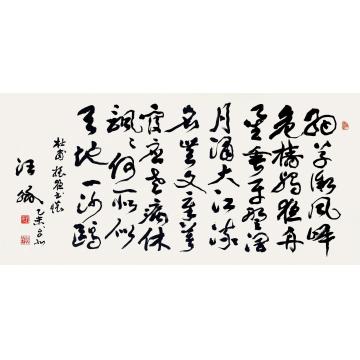 細草微風岸
危樯獨夜舟
星垂平野闊
月涌大江流
名豈文章著
官應老病休
飄〻何所似
天地一沙鷗
杜甫旅夜書懷
汪
乙未